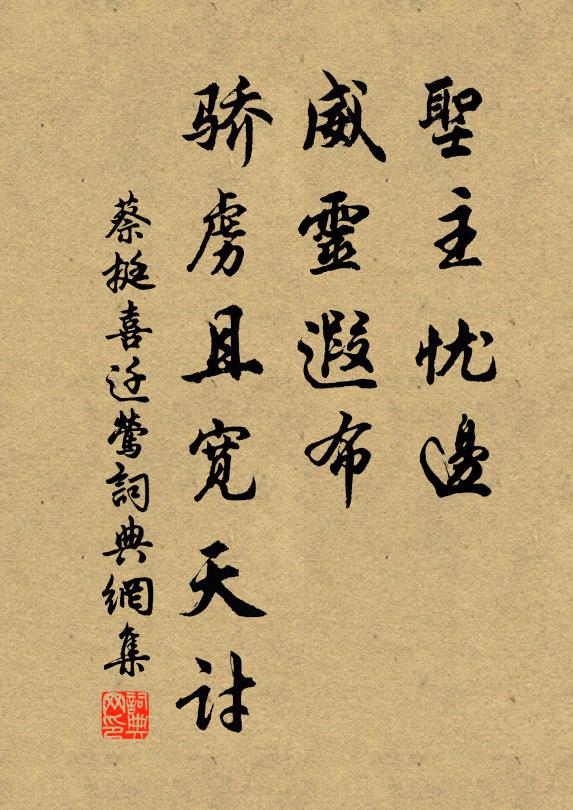 聖主忧邊
威靈遐布
骄虏且寛天討
蔡挺喜迁鶯詞典網集
詞典网印